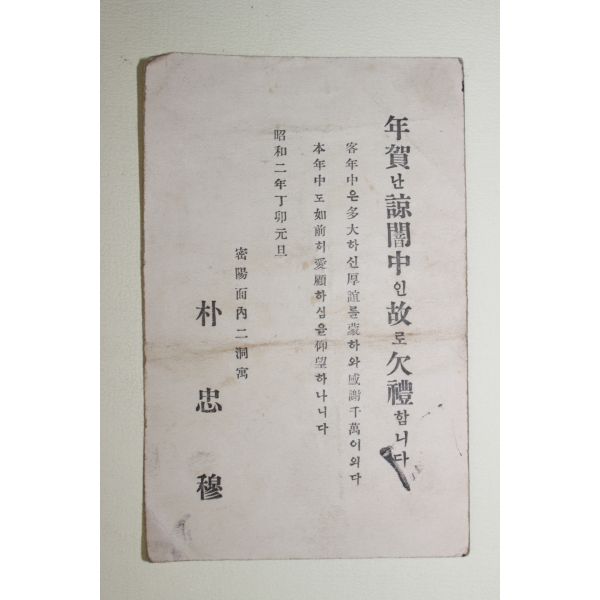 年賀난諒闇中인故로欠禮함니다
客年中은多大하신厚誼를蒙하와感謝千萬이외다
本年中도如前히愛顧하심을仰望하나니다
昭和二年丁卯元旦
密陽面內二洞寓
朴忠穆